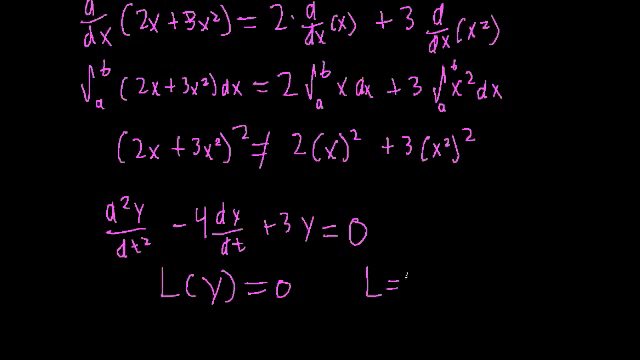 d/dx (2x + 3x²) = 2 · d/dx (x) + 3 d/dx (x²)
∫ₐᵇ (2x + 3x²) dx = 2 ∫ₐᵇ x dx + 3 ∫ₐᵇ x² dx
(2x + 3x²)² ≠ 2(x)² + 3(x²)²
d²y/dt² − 4 dy/dt + 3y = 0
L(y) = 0 L =